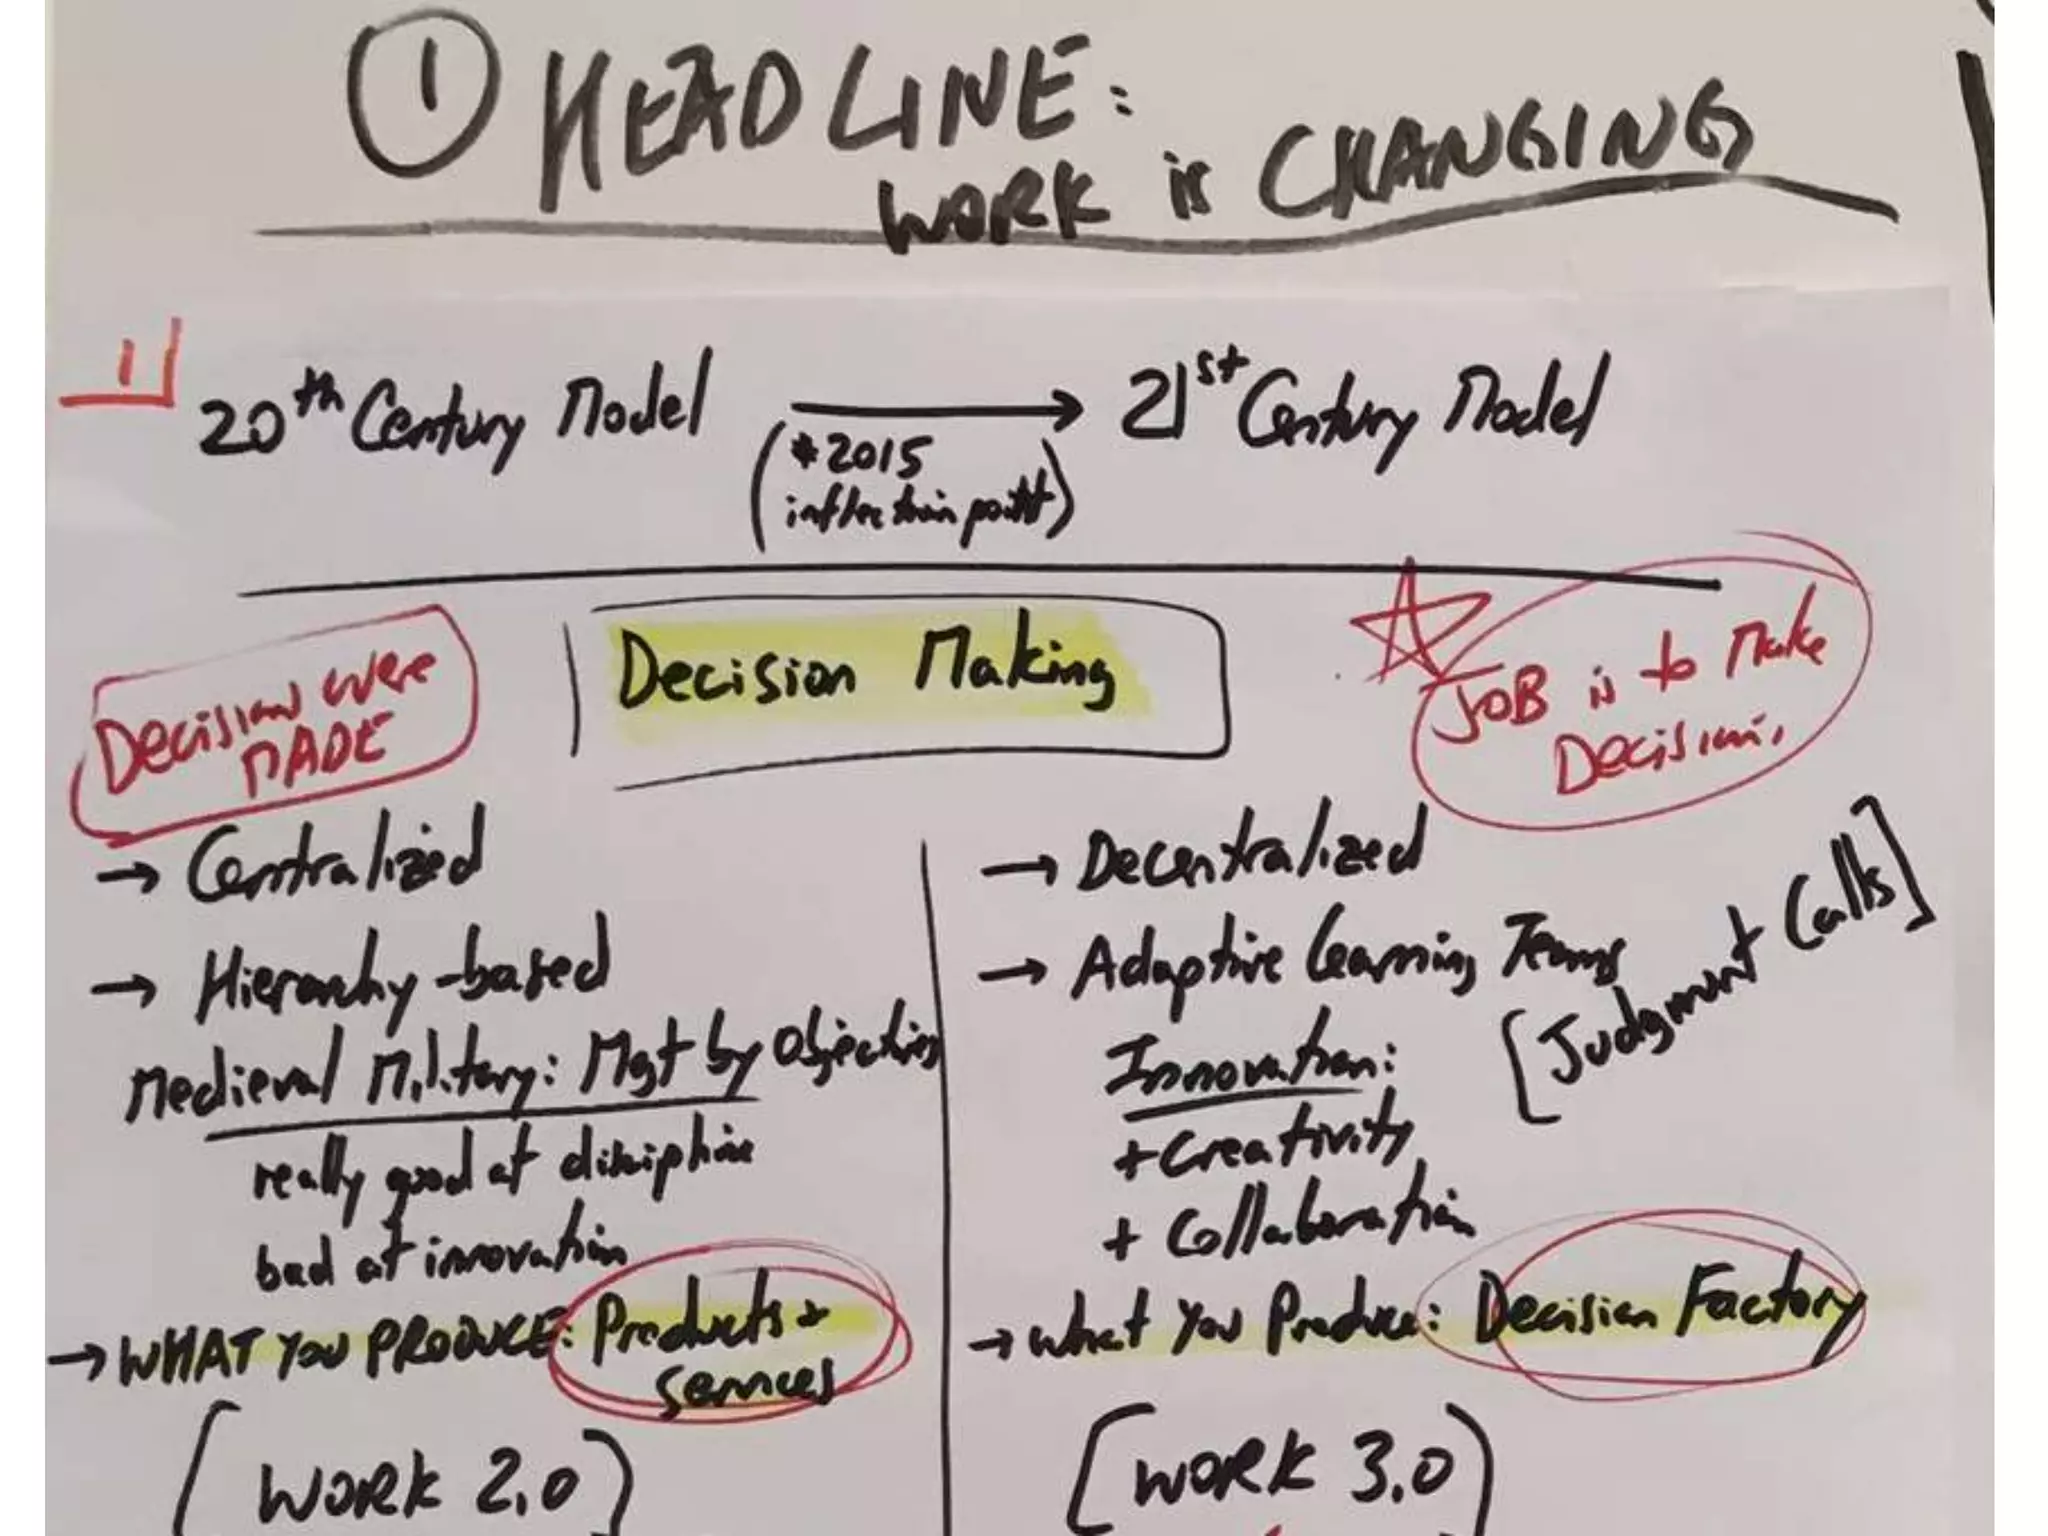 1 HEADLINE:
WORK is CHANGING
1
20th Century Model → 21st Century Model
(*2015
inflection point)
Decision Making
Decisions were
MADE
JOB is to Make
Decisions.
→ Centralized
→ Hierarchy-based
Medieval Military: Mgt by Objectives
really good at discipline
bad at innovation
→ WHAT YOU PRODUCE: Products +
services
[WORK 2.0]
→ Decentralized
→ Adaptive Learning Teams
[Judgment Calls]
Innovation:
+ Creativity
+ Collaboration
→ What You Produce: Decision Factory
[WORK 3.0]